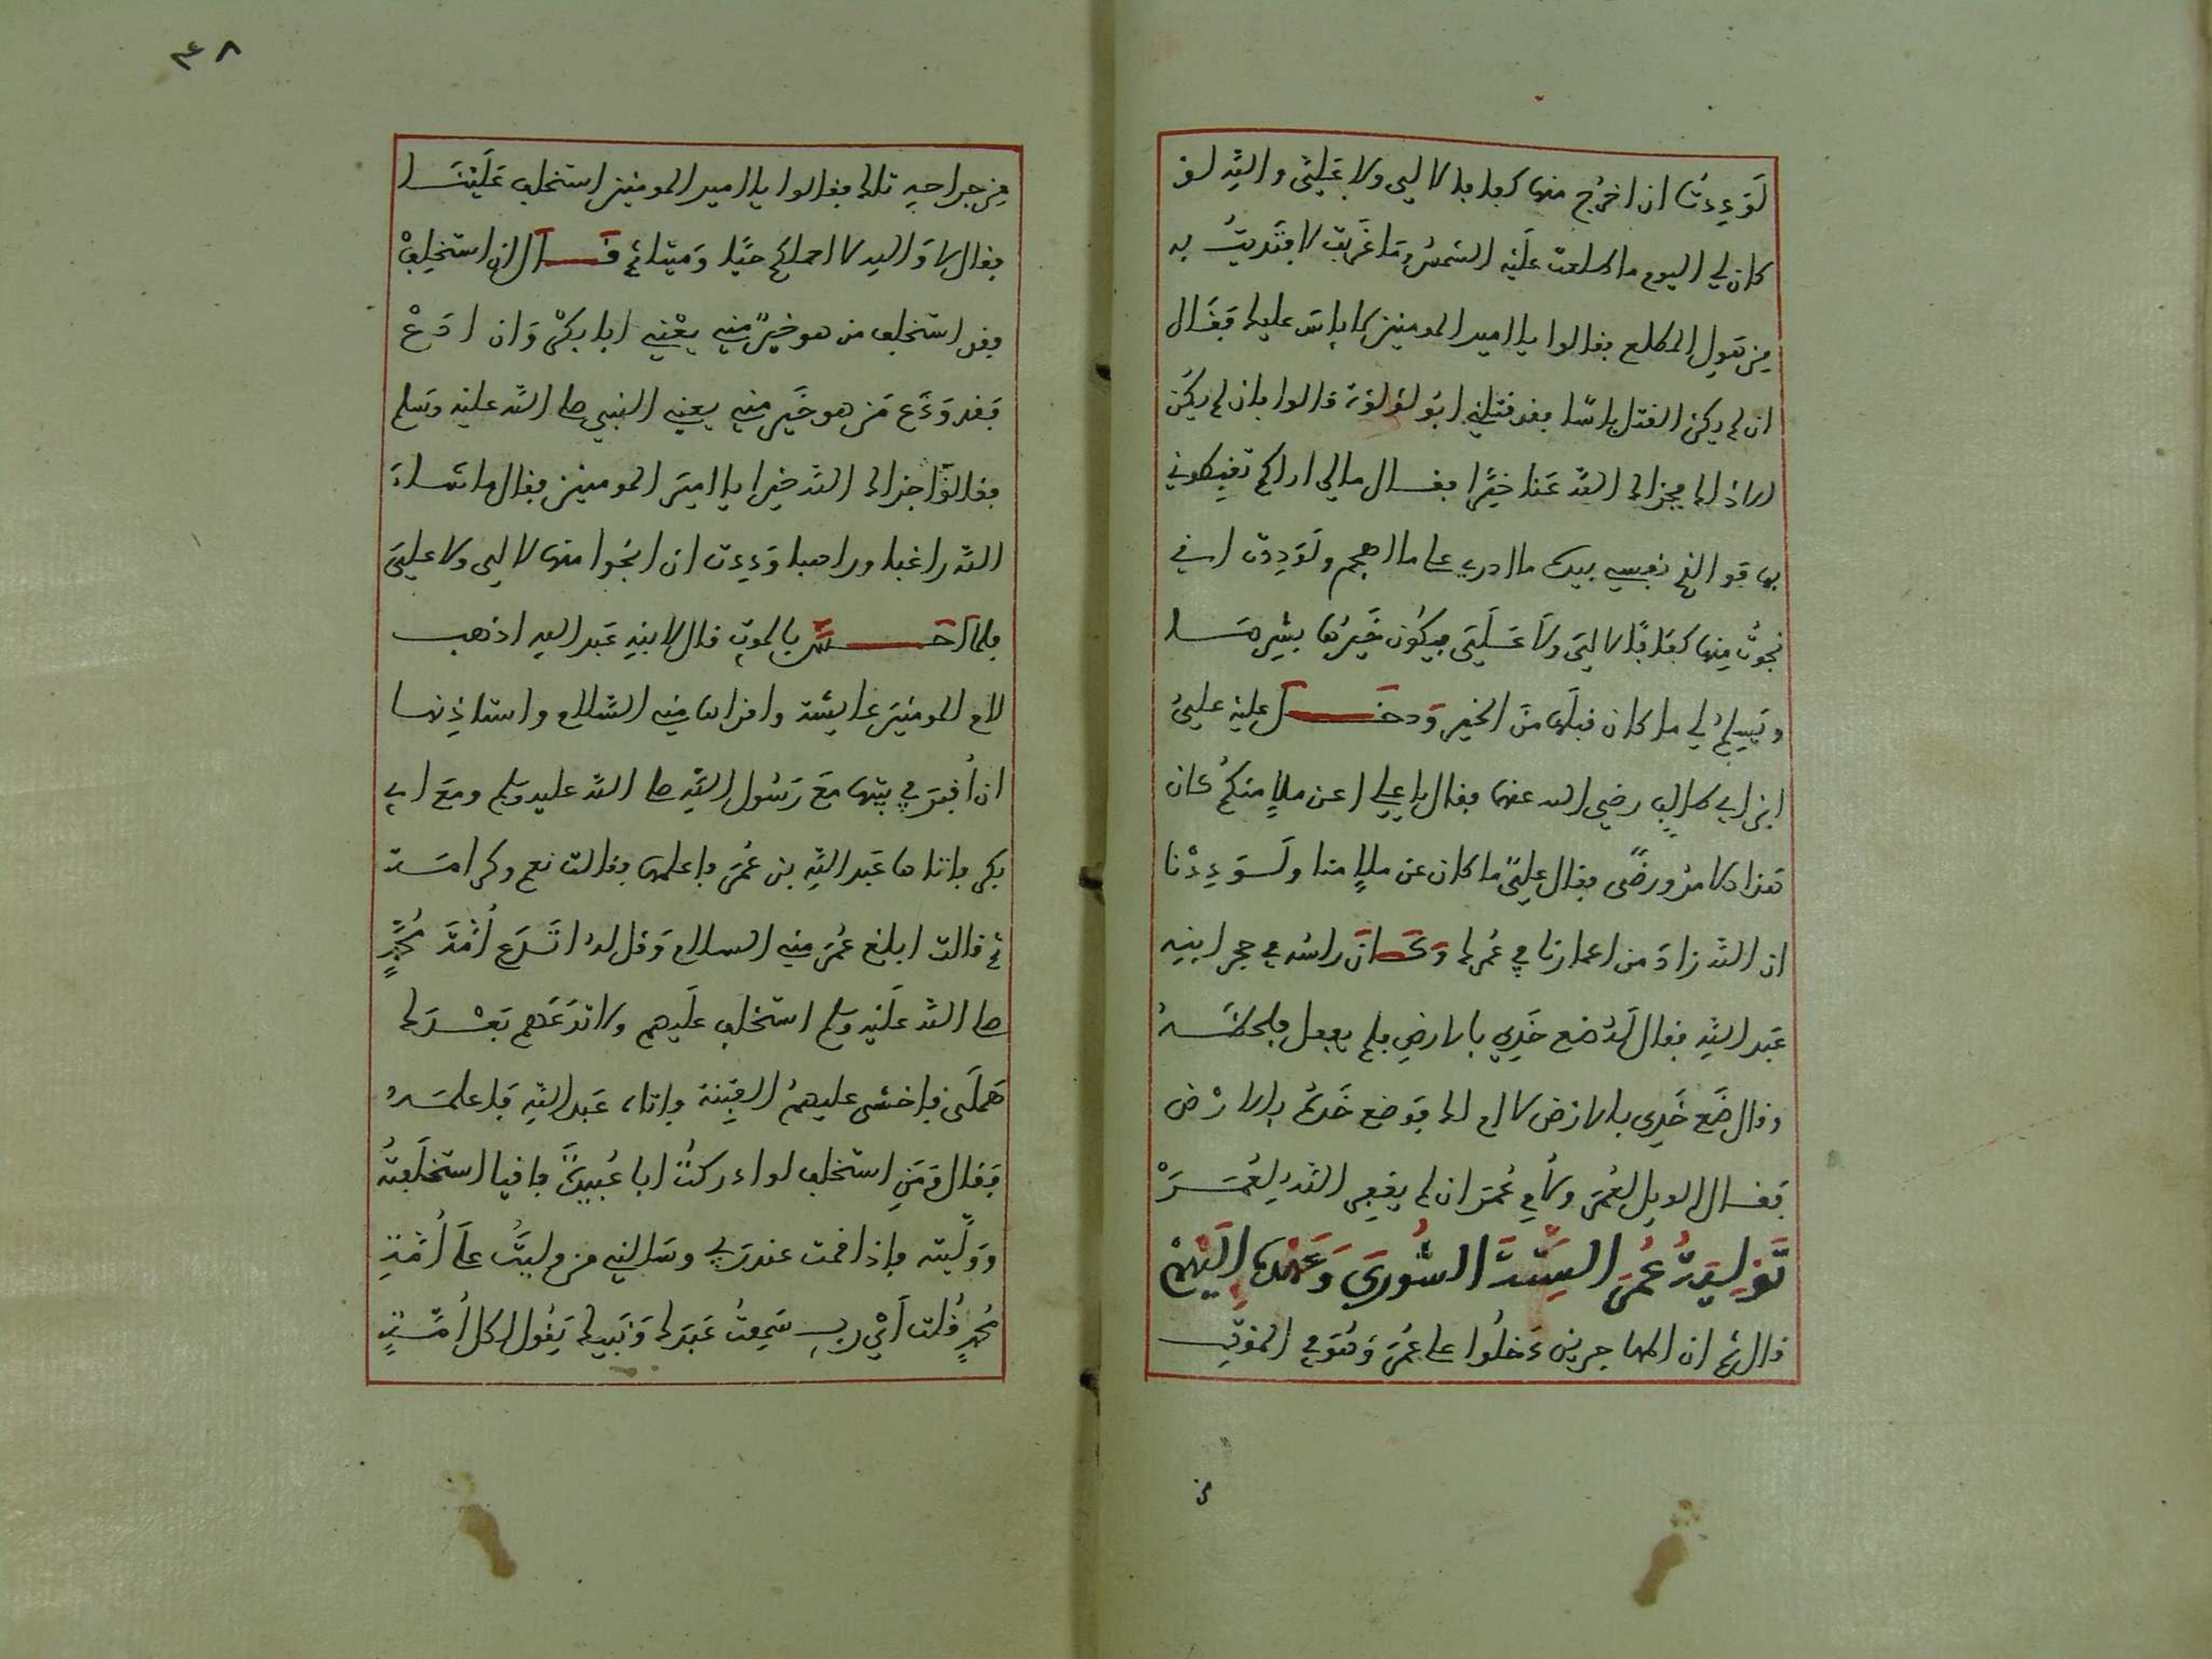 لَوَدِدتُ ان اخرُج منها كفافا لا لي ولا عَليَّ والله لو
كان لي اليوم ما طلعت عليه الشمسُ وما غربت لافتديتُ به
من هَول المطلع فقالوا يا امير المومنين لا باس عليك فقال
ان لم يكن القتل باسًا فقد قتلني ابو لؤلؤة قالوا فان لم يكن
ذاك فجزاك الله عنا خيرًا فقال مالي اراكم تغبطوني
بها فو الذي نفسي بيده ما ادري على ما اهجم ولوددت اني
نجوتُ منها كفافًا لا ليَ ولا عَليَّ فيكون خيرُها بشرها
ويسلمُ لي ما كان قبلها من الخير ودخل عليه عليُّ
ابن ابي طالب رضي الله عنهما فقال يا علي اعن ملإٍ منكم كان
هذا الامرُ ورضًى فقال عليٌّ ما كان عن ملإٍ منا ولوددنا
ان الله زاد من اعمارنا في عُمرك وكان راسه في حجر ابنه
عبد الله فقال له ضع خَدي بالارض فلم يفعل فلحظه
وقال ضع خَدي بالارض لا ام لك فوضع خَده بالارض
فقال الويل لعُمرَ ولأم عُمرَ ان لم يغفر الله لعُمر
تولية عمر الستة الشورى وعهده اليهم
قال ثم ان المهاجرين دخلوا على عُمر وهو في الموت
٤٨
من جراحه تلك فقالوا يا امير المومنين استخلف عَلَيْنا
فقال لا والله لا احملكم حيًّا ومَيتا ثم قال ان استخلفْ
فقد استخلف من هو خيرٌ مني يعْني ابا بكر وان ادَعْ
فقد ودَع مَن هو خَير مني يعني النبي صلى الله عليه وسلم
فقالوا جزاك الله خيرا يا امير المومنين فقال ما شاء
الله راغبا وراهبا ودِدت ان انجوا منها لا لي ولا عليَّ
فلما احس بالموت قال لابنه عبد الله اذهب
لام المومنين عايشة واقراها مني السلام واستاذنها
ان اُقبرَ في بيتها معَ رسُول الله صلى الله عليه وسلم ومعَ ابي
بكر فاتاها عَبد الله بن عُمَر فاعلمها فقالت نعم وكرامة
ثم قالت ابلغ عُمَرَ مني السلام وقل له اتَدع اُمَّة مُحمَّدٍ
صلى الله عليه وسلم استخلف علَيهم ولا تدَعهم بَعْدك
هَملَى فاخشى عليهمُ الفتنة فاتاه عَبد الله فاعلمه
فقال ومَن استخلف لو ادركتُ ابا عُبيدة باقيا استخلَفتُه
ووَلَّيته فاذا قمت عند ربي وسالني من وليتُ على اُمَّة
مُحمدٍ قُلت أيْ رب سَمعتُ عَبدَك ونَبيك يَقُول لكل اُمَّةٍ